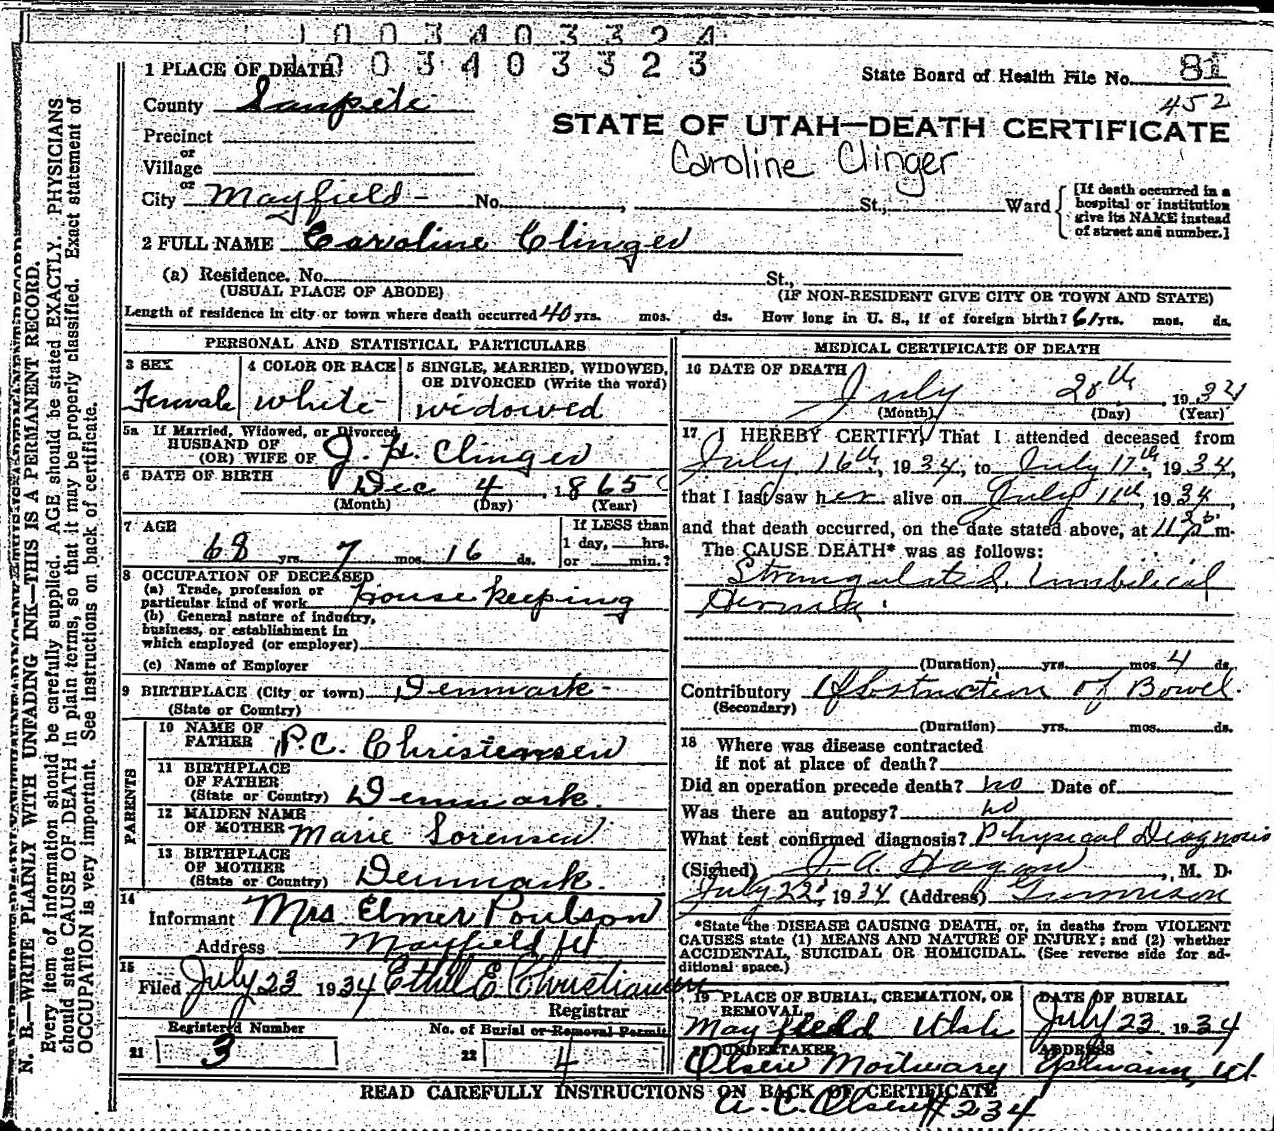 1 0 0 3 4 0 3 3 2 4
1 0 0 3 4 0 3 3 2 3
1 PLACE OF DEATH
State Board of Health File No. 81
County Sanpete
452
STATE OF UTAH—DEATH CERTIFICATE
Precinct
or
Caroline Clinger
Village
or
City Mayfield - No. , St., Ward
[If death occurred in a
hospital or institution
give its NAME instead
of street and number.]
2 FULL NAME Caroline Clinger
(a) Residence. No. St.,
(USUAL PLACE OF ABODE) (IF NON-RESIDENT GIVE CITY OR TOWN AND STATE)
Length of residence in city or town where death occurred 40 yrs. mos. ds. How long in U. S., if of foreign birth? 61 yrs. mos. ds.
PERSONAL AND STATISTICAL PARTICULARS
3 SEX
Female
4 COLOR OR RACE
White
5 SINGLE, MARRIED, WIDOWED,
OR DIVORCED (Write the word)
widowed
5a If Married, Widowed, or Divorced
HUSBAND OF
(OR) WIFE OF J. H. Clinger
6 DATE OF BIRTH Dec 4, 1865
(Month) (Day) (Year)
7 AGE
68 yrs. 7 mos. 16 ds.
If LESS than
1 day, hrs.
or min.?
8 OCCUPATION OF DECEASED
(a) Trade, profession or
particular kind of work House keeping
(b) General nature of industry,
business, or establishment in
which employed (or employer)
(c) Name of Employer
9 BIRTHPLACE (City or town) Denmark -
(State or Country)
PARENTS
10 NAME OF
FATHER P.C. Christensen
11 BIRTHPLACE
OF FATHER
(State or Country) Denmark.
12 MAIDEN NAME
OF MOTHER Marie Sorensen
13 BIRTHPLACE
OF MOTHER
(State or Country) Denmark.
14
Informant Mrs Elmer Poulson
Address Mayfield Ut
15
Filed July 23 1934 Ethel E Christiansen
Registrar
Registered Number
21 3
No. of Burial or Removal Permit
22 4
MEDICAL CERTIFICATE OF DEATH
16 DATE OF DEATH
July 20th, 1934
(Month) (Day) (Year)
17 I HEREBY CERTIFY, That I attended deceased from
July 16th, 1934, to July 17th, 1934,
that I last saw her alive on July 1 th, 1934,
and that death occurred, on the date stated above, at 11 m.
The CAUSE DEATH* was as follows:
Strangulated Umbilical
Hernia.
(Duration) yrs. mos. 4 ds.
Contributory Obstruction of Bowel.
(Secondary)
(Duration) yrs. mos. ds.
18 Where was disease contracted
if not at place of death?
Did an operation precede death? no Date of
Was there an autopsy? no
What test confirmed diagnosis? Physical Diagnosis
(Signed) J. A. Hagan, M. D.
July 22d, 1934 (Address) Gunnison
*State the DISEASE CAUSING DEATH, or, in deaths from VIOLENT
CAUSES state (1) MEANS AND NATURE OF INJURY; and (2) whether
ACCIDENTAL, SUICIDAL OR HOMICIDAL. (See reverse side for ad-
ditional space.)
19 PLACE OF BURIAL, CREMATION, OR
REMOVAL
Mayfield Utah
DATE OF BURIAL
July 23 1934
UNDERTAKER
Olsen Mortuary
ADDRESS
Ephraim, Ut.
READ CAREFULLY INSTRUCTIONS ON BACK OF CERTIFICATE
A. C. Olsen #234
N. B.—WRITE PLAINLY WITH UNFADING INK—THIS IS A PERMANENT RECORD.
Every item of information should be carefully supplied. AGE should be stated EXACTLY. PHYSICIANS
should state CAUSE OF DEATH in plain terms, so that it may be properly classified. Exact statement of
OCCUPATION is very important. See instructions on back of certificate.